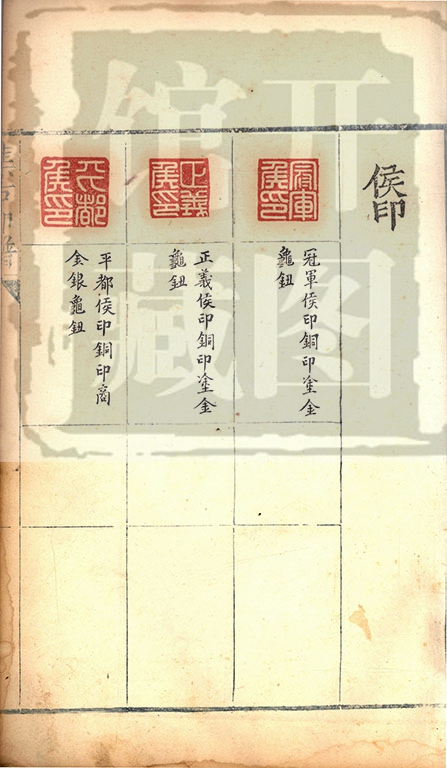 侯印
冠軍侯印
冠軍侯印銅印塗金
龜鈕
正義侯印
正義侯印銅印塗金
龜鈕
平都侯印
平都侯印銅印商
金銀龜鈕
集古印譜